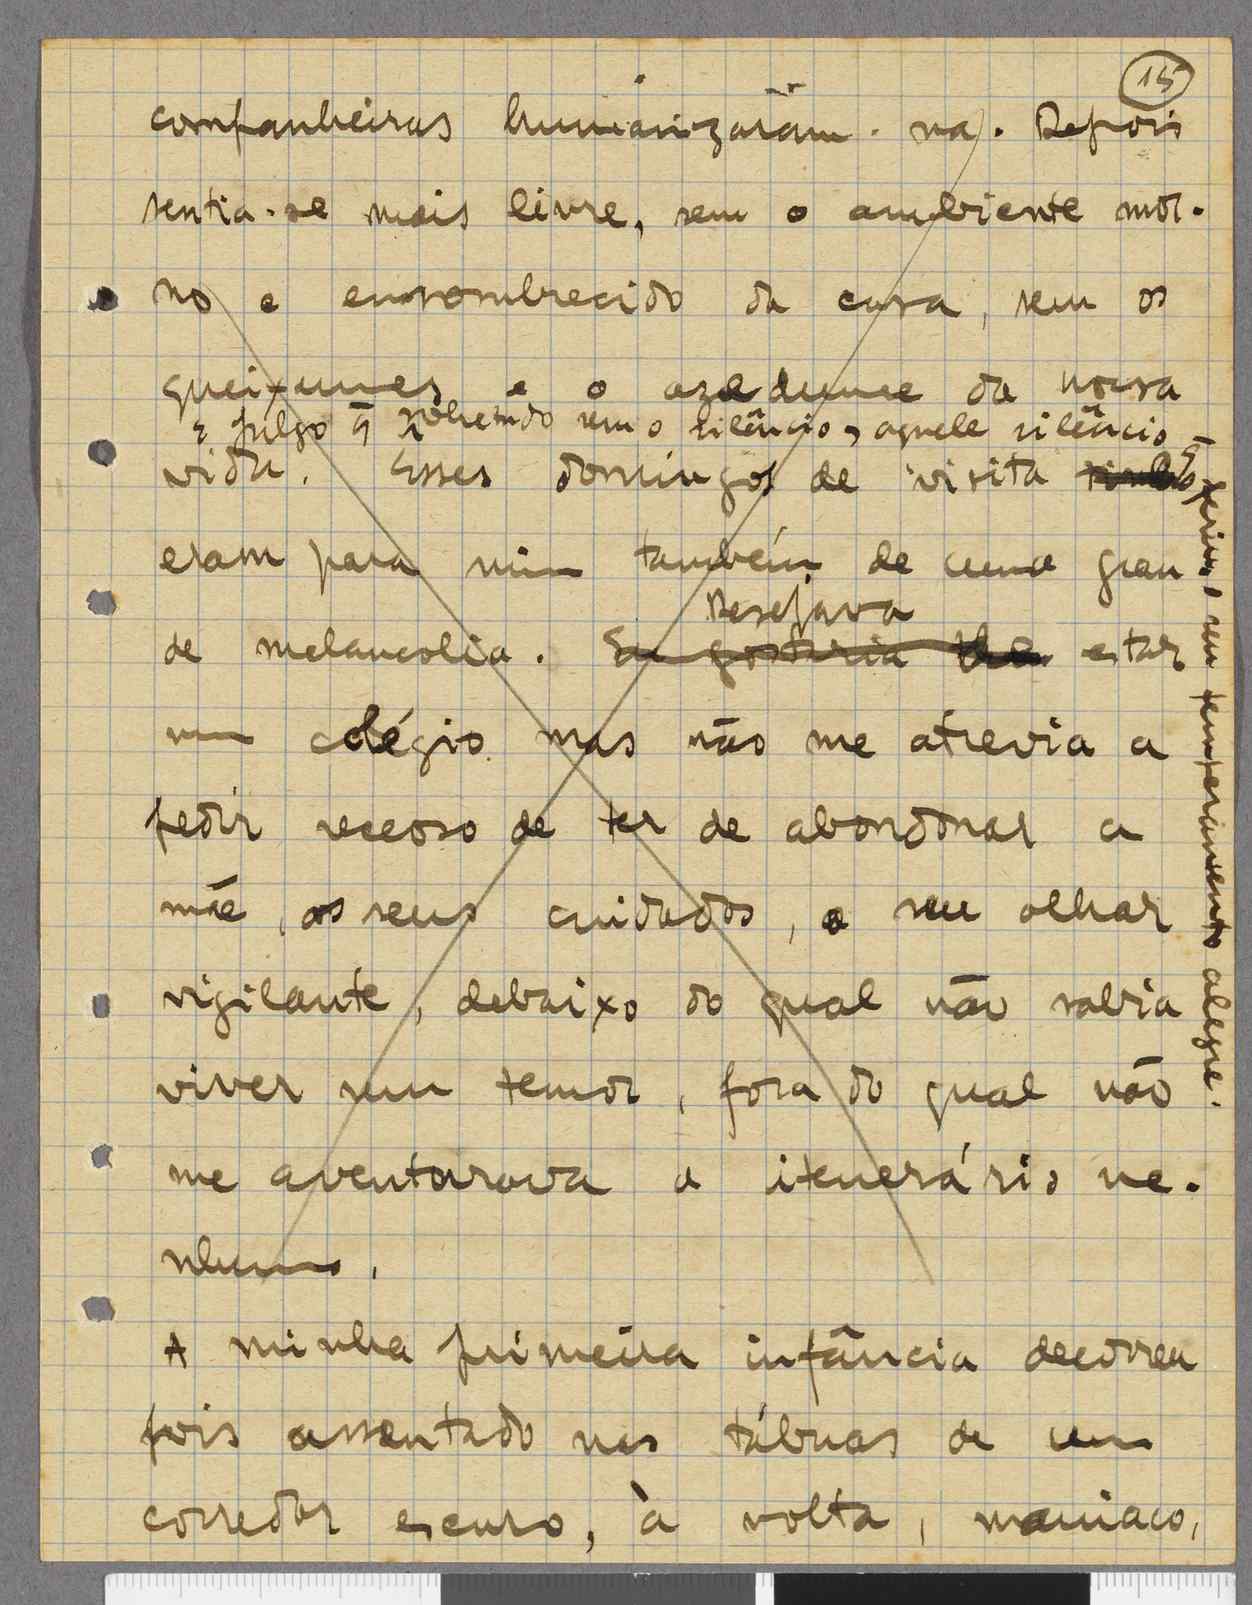 15
companheiras humanizaram-na. Depois
sentia-se mais livre, sem o ambiente mor-
no e ensombrecido da casa, sem os
queixumes e o azedume da nossa
e julgo q̄ sobretudo sem o silêncio, aquele silêncio q̄
vida. Esses domingos de visita
feria o seu temperamento alegre.
eram para mim também de uma gran
de melancolia. Eu gostaria de estar
Desejava
num colégio mas não me atrevia a
pedir receoso de ter de abandonar a
mãe, os seus cuidados, o seu olhar
vigilante, debaixo do qual não sabia
viver sem temor, fora do qual não
me aventurava a itenerário ne-
nhum.
A minha primeira infância decorreu
pois assentado nas tábuas de um
corredor escuro, à volta, maníaco,